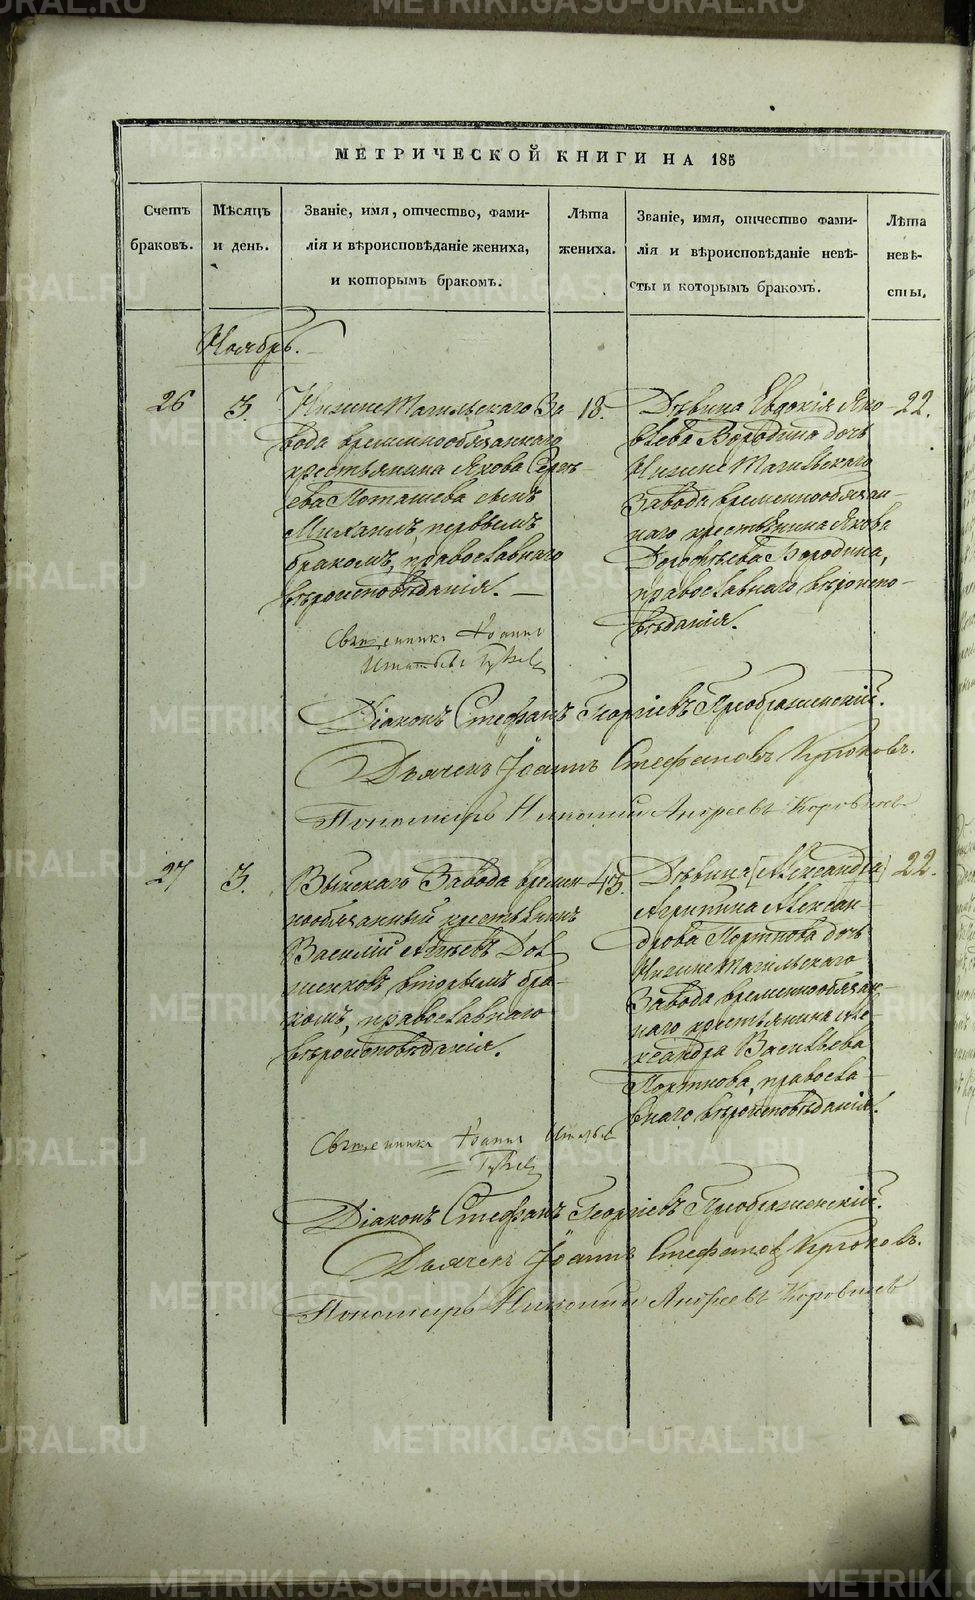 МЕТРИЧЕСКОЙ КНИГИ НА 185
Счетъ браковъ.
Мѣсяцъ и день.
Званіе, имя, отчество, фами-
лія и вѣроисповѣданіе жениха,
и которымъ бракомъ.
Лѣта
жениха.
Званіе, имя, отчество фами-
лія и вѣроисповѣданіе невѣ-
сты и которымъ бракомъ.
Лѣта
невѣ-
сты.
Ноябрь.
26
3.
НижнеТагильскаго За-
вода временнообязаннаго
крестьянина Якова Серге-
ева Поташева сынъ
Михаилъ, первымъ
бракомъ, православнаго
вѣроисповѣданія.
18.
Дѣвица Евдокія Яко-
влева Бородина дочь
НижнеТагильскаго
Завода временнообязан-
наго крестьянина Якова
Дорофѣева Бородина,
православнаго вѣроиспо-
вѣданія.
22.
Священникъ Іоаннъ
Діаконъ Стефанъ Георгіевъ Преображенскій.
Дьячекъ Іоаннъ Стефановъ Крюковъ.
Пономарь Николай Андреевъ
27
3.
Выйскаго Завода времен-
нообязанный крестьянинъ
Василій
вторымъ бра-
комъ, православнаго
вѣроисповѣданія.
45.
Дѣвица [Александра]
Агрипина Алексан-
дрова Портнова дочь
НижнеТагильскаго
Завода временнообязан-
наго крестьянина Але-
ксандра Васильева
Портнова, правосла-
внаго вѣроисповѣданія.
22.
Священникъ Іоаннъ
Діаконъ Стефанъ Георгіевъ Преображенскій.
Дьячекъ Іоаннъ Стефановъ Крюковъ.
Пономарь Николай Андреевъ
METRIKI.GASO-URAL.RU